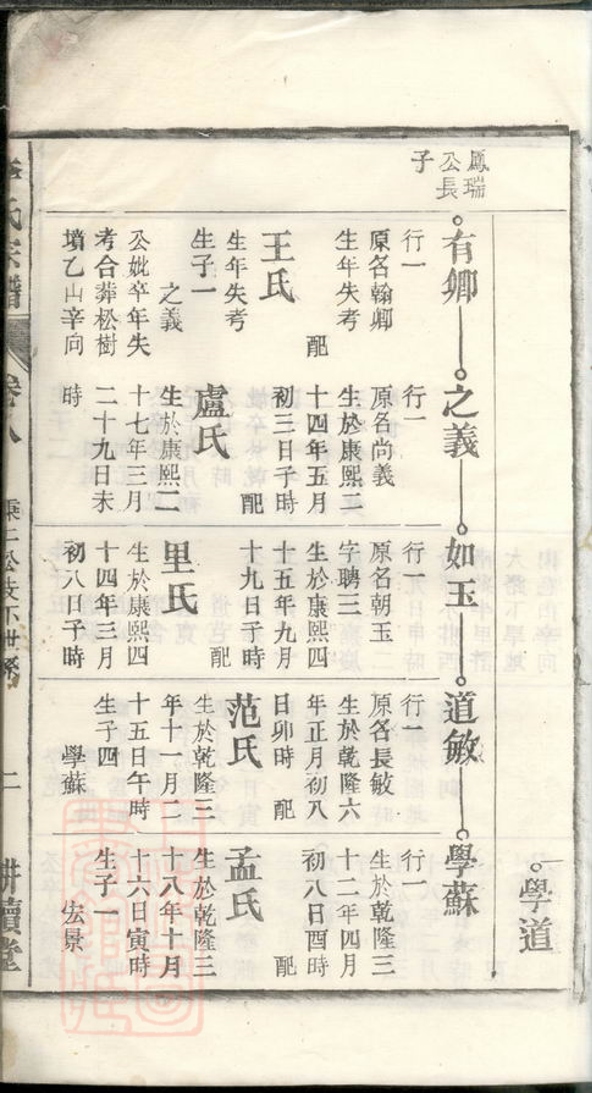 學道
鳳瑞
公長
子
有卿
行一
原名翰卿
生年失考
配
王氏
生年失考
生子一
之義
公妣卒年失
考合葬松樹
墳乙山辛向
之義
行一
原名尚義
生於康熙二
十四年五月
初三日子時
配
盧氏
生於康熙二
十七年三月
二十九日未
時
如玉
行一
原名朝玉
字聘三
生於康熙四
十五年九月
十九日子時
配
里氏
生於康熙四
十四年三月
初八日子時
道敏
行一
原名長敏
生於乾隆六
年正月初八
日卯時
配
范氏
生於乾隆三
年十一月二
十五日午時
生子四
學蘇
學蘇
行一
生於乾隆三
十二年四月
初八日酉時
配
孟氏
生於乾隆三
十八年十月
十六日寅時
生子一
宏景
氏宗譜
卷八
公支下世系
二
耕讀堂